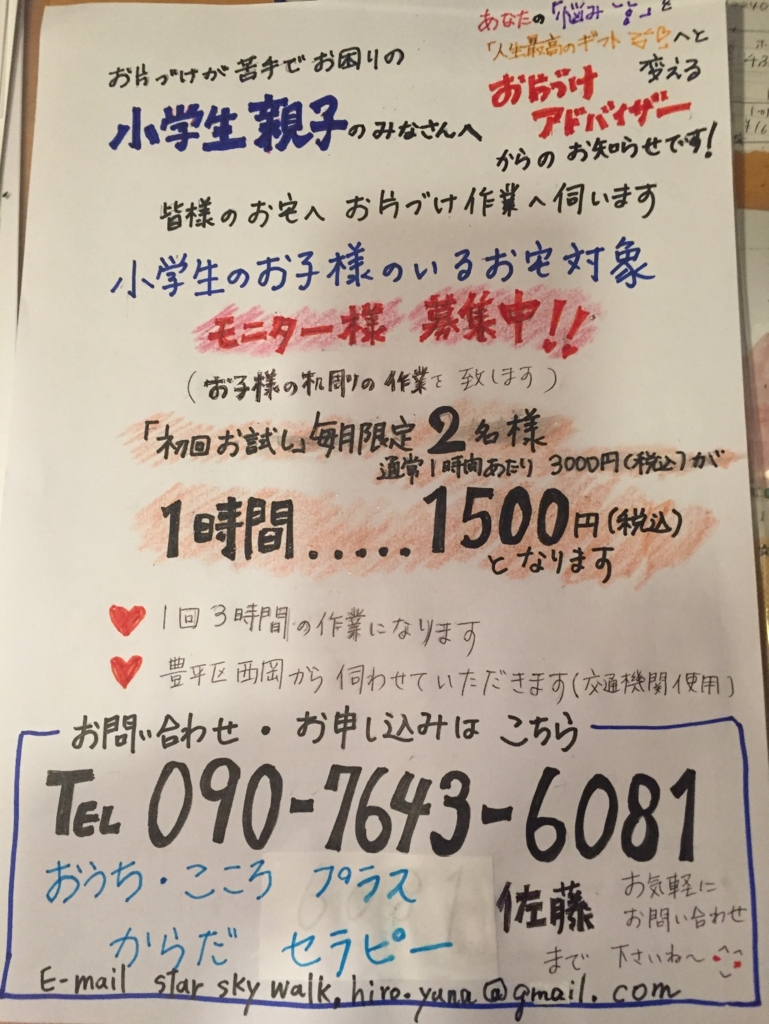 あなたの「悩みごと」を
「人生最高のギフト」へと
変える
お片づけ
アドバイザー
からの お知らせです!
お片づけが苦手でお困りの
小学生親子のみなさんへ
皆様のお宅へ お片づけ作業へ伺います
小学生のお子様のいるお宅対象
モニター様 募集中!!
(お子様の机周りの作業を致します)
「初回お試し」毎月限定 2名様
通常1時間あたり 3000円(税込)が
1時間.....1500円(税込)
となります
1回3時間の作業になります
豊平区西岡から伺わせていただきます(交通機関使用)
お問い合わせ・お申し込みは こちら
TEL 090-7643-6081
おうち・こころ プラス
からだ セラピー
佐藤
お気軽に
お問い合わせ
まで 下さいね〜
E-mail star sky walk.hiro.yuna@gmail.com